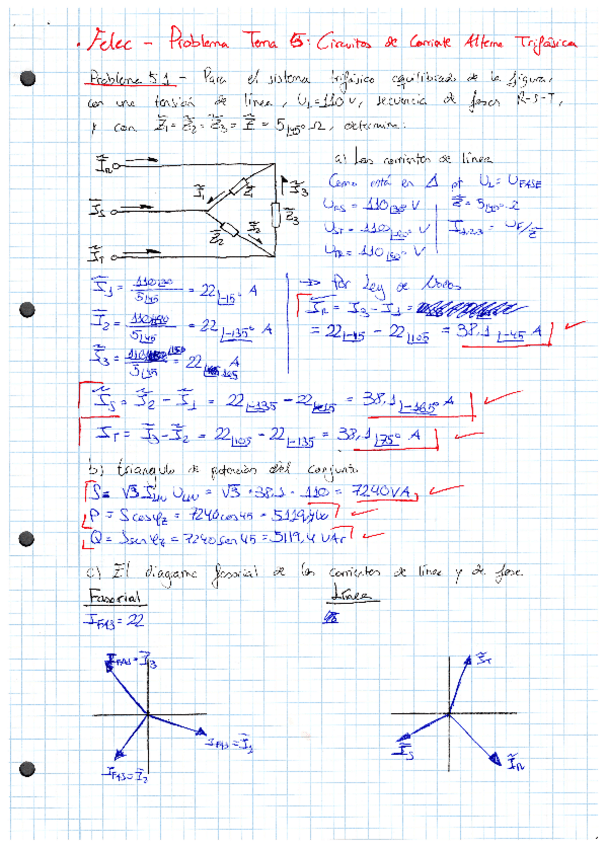 • Felec - Problema Tema 5: Circuitos de Corriente Alterna Trifásica
Problema 5.1 - Para el sistema trifásico equilibrado de la figura,
con una tensión de línea, UL=110 V, secuencia de fases R-S-T,
y con Z̄1=Z̄2=Z̄3=Z̄=5|45° Ω, determine:
ĨR
ĨS
ĨT
Ĩ1
Z̄1
Ĩ3
Z̄3
Ĩ2
Z̄2
a) Las corrientes de línea
Como está en Δ UL=UFASE
Z̄=5|45° Ω
I1,2,3 = UF/Z̄
Ĩ1 = = 22|-15° A
Ĩ2 = = 22|-135° A
Ĩ3 = = 22 A
→ Por Ley de Nodos
ĨR = Ĩ3 - Ĩ1 =
= 22|-15 - 22|105 = 38.1|-45 A
ĨS = Ĩ2 - Ĩ1 = 22|-135 - 22|-15 = 38.1|-165° A
ĨT = Ĩ3 - Ĩ2 = 22|105 - 22|-135 = 38,1|75° A
b) triangulo de potencias del conjunto.
S = √3 · · = √3 · 38.1 · 110 = 7240 VA
P = S cos φz = 7240 cos 45 = 5119,4 W
Q = S sen φz = 7240 sen 45 = 5119,4 VAr
c) El diagrama fasorial de las corrientes de línea y de fase.
Fasorial
Línea
IFAS = 22
IFAS = Ĩ3
IFAS = Ĩ1
IFAS = Ĩ2
ĨT
ĨS
ĨR